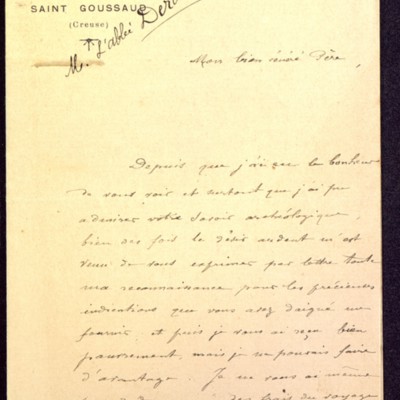 SAINT GOUSSAUD
(Creuse)
M. l'abbé
Mon bien vénéré Père,
Depuis que j'ai eu le bonheur
de vous voir et surtout que j'ai pu
admirer votre savoir archéologique,
bien des fois le désir ardent m'est
venu de vous exprimer par lettre toute
ma reconnaissance pour les précieuses
indications que vous avez daigné me
fournir et puis je vous ai reçu bien
pauvrement, mais je ne pouvais faire
d'avantage. Je ne vous ai même
des frais du voyage